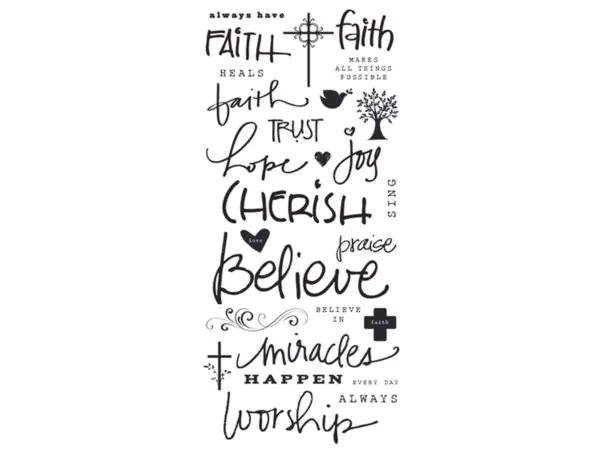 always have
FAITH
faith
HEALS
MAKES
ALL THINGS
POSSIBLE
faith
TRUST
hope
joy
SING
CHERISH
love
praise
Believe
BELIEVE
IN
faith
miracles
HAPPEN
EVERY DAY
ALWAYS
Worship